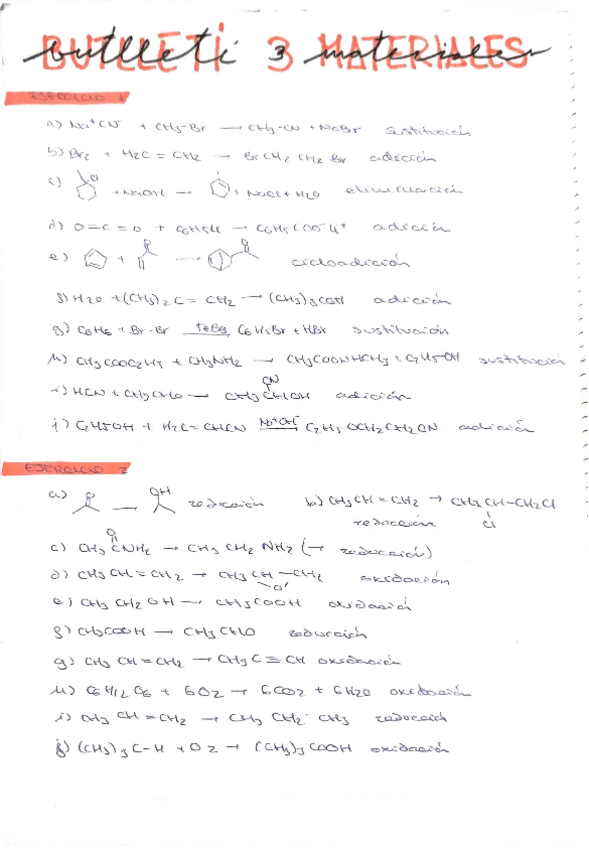 BUTLLETI 3 MATERIALES
butlleti materiales
EJERCICIO 1
a) Na⁺CN⁻ + CH3-Br → CH3-CN + NaBr sustitución
b) Br2 + H2C = CH2 → BrCH2CH2Br adición
c) Cl + NaOH → + NaCl + H2O eliminación
d) O=C=O + C6H5Li → C6H5COO⁻Li⁺ adición
e) + → cicloadición
f) H2O + (CH3)2C = CH2 → (CH3)3COH adición
g) C6H6 + Br-Br FeBr3→ C6H5Br + HBr sustitución
h) CH3COOC2H5 + CH3NH2 → CH3COONHCH3 + C2H5OH sustitución
CN
i) HCN + CH3CHO → CH3CHOH adición
j) C2H5OH + H2C=CHCN Na⁺OH⁻→ C2H5OCH2CH2CN adición
EJERCICIO 2
a) O → OH reducción b) CH3CH=CH2 → CH3CH-CH2Cl
reducción Cl
O
c) CH3CNH2 → CH3CH2NH2 (→ reducción)
d) CH3CH=CH2 → CH3CH-CH2 oxidación
O
e) CH3CH2OH → CH3COOH oxidación
f) CH3COOH → CH3CHO reducción
g) CH3CH=CH2 → CH3C≡CH oxidación
h) C6H12O6 + 6O2 → 6CO2 + 6H2O oxidación
i) CH3CH=CH2 → CH3CH2-CH3 reducción
j) (CH3)3C-H + O2 → (CH3)3COOH oxidación